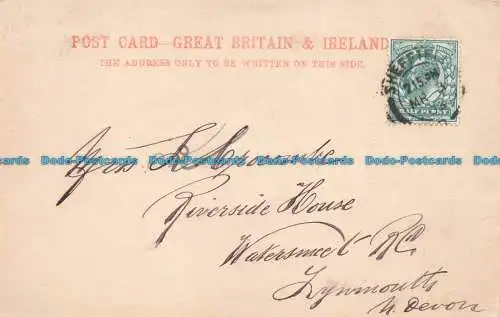 POST CARD—GREAT BRITAIN & IRELAND
THE ADDRESS ONLY TO BE WRITTEN ON THIS SIDE.
SHEFFIEL
2.15 PM
HALFPENNY
Dodo-Postcards Dodo-Postcards Dodo-Postcards Dodo-Postcards Dodo-Postcards
Miss K
Riverside House
Watersmeet Rd
Lynmouth
N. Devon